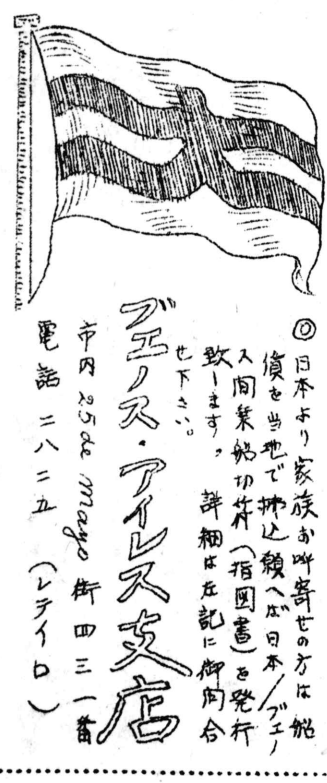 ◎日本より家族お呼寄せの方は船
賃を当地で払込願へば日本／ブエノ
ス間乗船切符（指図書）を発行
致します。詳細は左記に御問合
せ下さい。
ブエノス・アイレス支店
市内25 de Mayo街四三一番
電話 二八二五（レティロ）